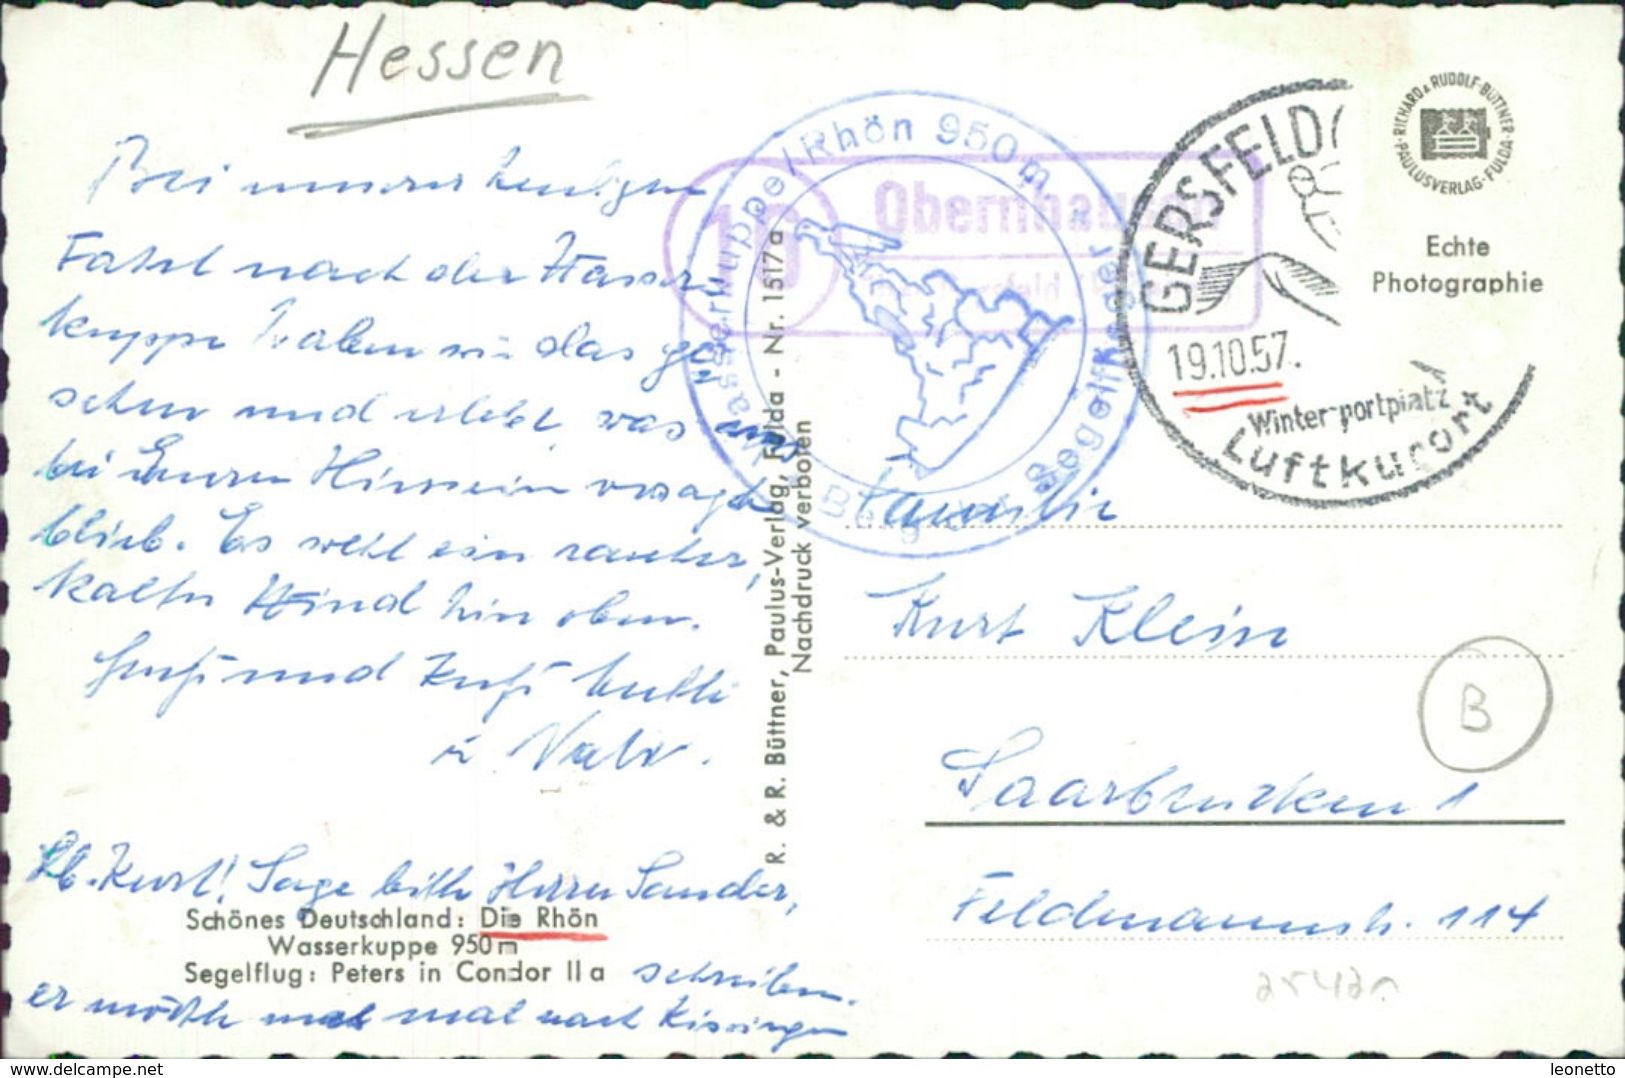 Hessen
Bei unserer heutigen
Fahrt nach der Wasser-
kuppe haben wir das ge-
sehen und erlebt, was uns
bei Eurem Hiersein versagt
blieb. Es weht ein rauher,
kalter Wind hier oben.
Gruß und Kuß Mutti
u. Vater.
Lb. Kurt! Sage bitte Herrn Sander,
er möchte mal nach Kissingen
schreiben.
Schönes Deutschland: Die Rhön
Wasserkuppe 950 m
Segelflug: Peters in Condor II a
R. & R. Büttner, Paulus-Verlag, Fulda - Nr. 1517 a
Nachdruck verboten
Wasserkuppe/Rhön 950m
Berg der Segelflieger
16
Obernhausen
GERSFELD/
19.10.57.
Wintersportplatz
Luftkurort
RICHARD & RUDOLF BÜTTNER
PAULUSVERLAG · FULDA
Echte
Photographie
Familie
Kurt Klein
B
Saarbrücken 1
Feldmannstr. 114
www.delcampe.net
leonetto